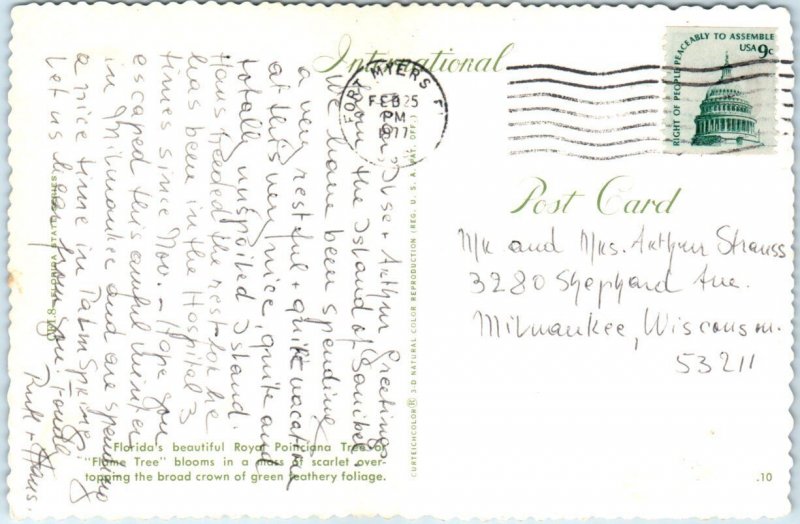 International
Post Card
RIGHT OF PEOPLE PEACEABLY TO ASSEMBLE
USA 9c
FORT MYERS F
FEB 25
PM
1977
Mr and Mrs. Arthur Strauss
3280 Shephard Ave.
Milwaukee, Wisconsin.
53211
Dear Ilse + Arthur Greetings
from the Island of Sanibel.
We have been spending
a very restful + quite vacation
at this very nice, quite and
totally unspoiled Island.
Hans needed the rest for he
has been in the Hospital 3
times since Nov. – Hope you
escaped this awful winter
in Milwaukee and are spending
a nice time in Palm Springs
Let us hear from you. Fondly
Ruth + Hans.
FLORIDA STATE SERIES
CURTEICHCOLOR® 3-D NATURAL COLOR REPRODUCTION (REG. U. S. A. PAT. OFF.)
Florida's beautiful Royal Poinciana Tree or
"Flame Tree" blooms in a mass of scarlet over-
topping the broad crown of green feathery foliage.
.10